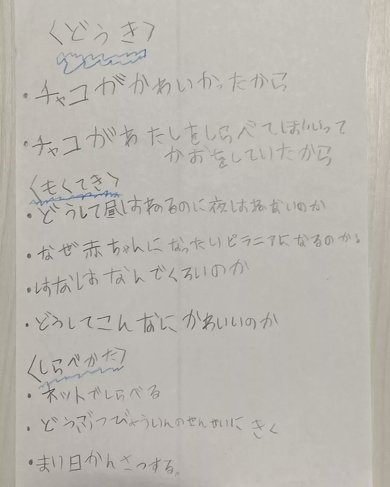 〈どうき〉
・チャコがかわいかったから
・チャコがあたしをしらべてばいって
かおをしていたから
〈もくてき〉
・どうして昼はねるのに夜はねないのか
・なぜ赤ちゃんになったいピラニアになるのか。
・はなしはなんでくろいのか
・どうしてこんなにかわいいのか
〈しらべかた〉
・ネットでしらべる
・どうぶつびょういんのせんせいにきく
・まい日かんさつする。